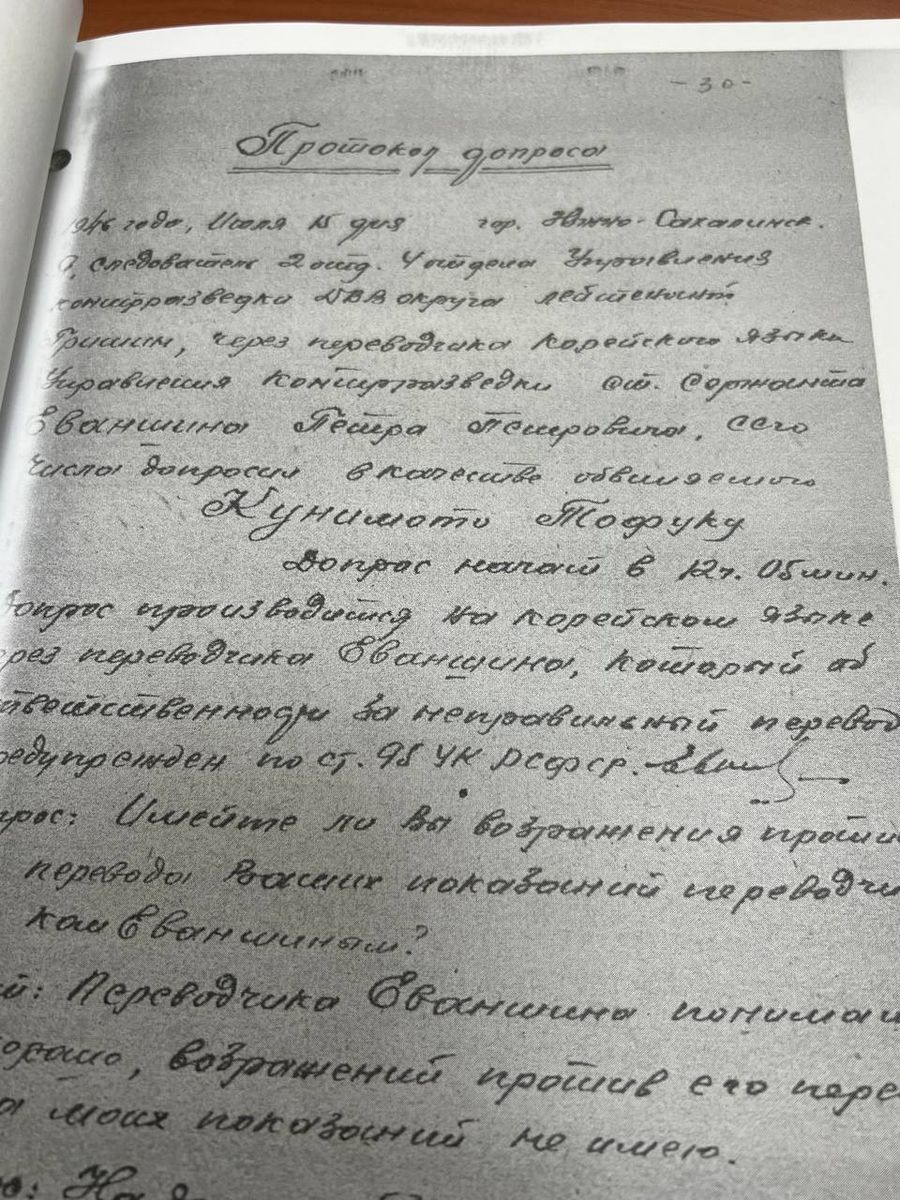 - 30 -
Протокол допроса
1946 года, Июля 15 дня гор. Южно-Сахалинск.
Я, следователь 2 отд. 4 отдела Управления
контрразведки ДВВ округа лейтенант
Гришин, через переводчика корейского языка
Управления контрразведки ст. Сержанта
Еваншина Петра Петровича, сего
числа допросил в качестве обвиняемого
Кунимото Тофуку
Допрос начат в 12 ч. 0 мин.
Допрос производится на корейском языке
через переводчика Еваншина, который об
ответственности за неправильный перевод
предупрежден по ст. 95 УК РСФСР.
прос: Имейте ли Вы возражения против
перевода Ваших показаний переводчи
ком Еваншиным?
й: Переводчика Еваншина понимаю
хорошо, возражений против его пере
а моих показаний не имею.
с: На